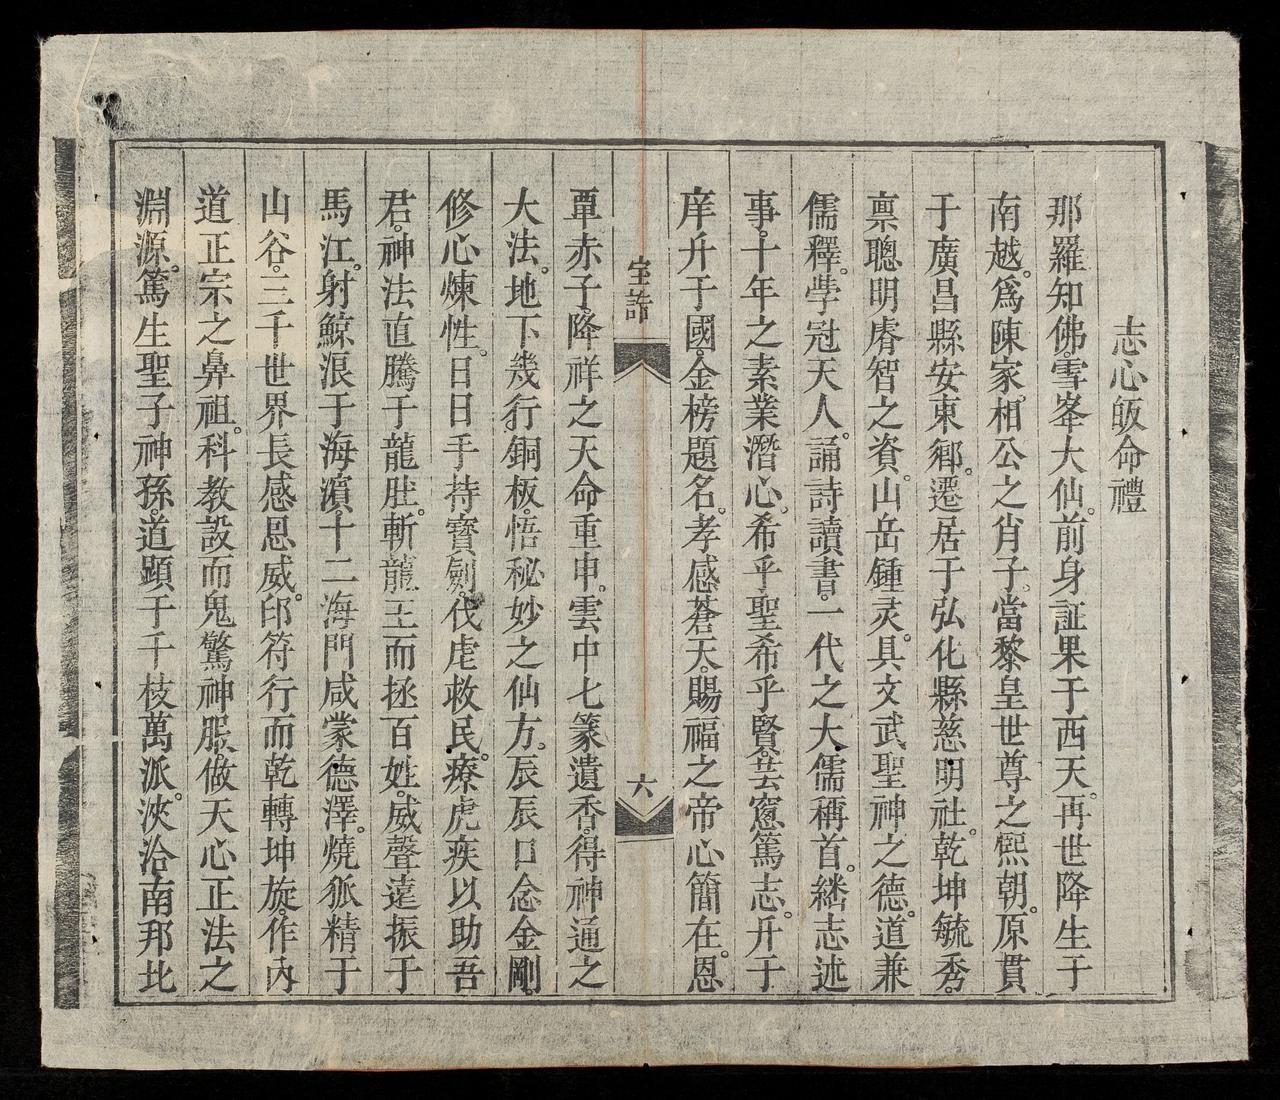 志心皈命禮
那羅知佛。雪峯大仙。前身証果于西天。再世降生于
南越。爲陳家。相公之肖子。當黎皇世尊之熙朝。原貫
于廣昌縣安東鄉。遷居于弘化縣慈明社。乾坤毓秀。
禀聰明睿智之資。山岳鍾灵。具文武聖神之德。道兼
儒釋。斈冠天人。誦詩讀書。一代之大儒稱首。繼志述
事。十年之素業潛心。希乎聖希乎賢。芸窓篤志。升于
庠升于國。金榜題名。孝感蒼天。賜福之帝心簡在。恩
宝誥
六
覃赤子。降祥之天命重申。雲中七篆遺香。得神通之
大法。地下幾行銅板。悟秘妙之仙方。辰辰口念金剛。
修心煉性。日日手持寶劍。伐虐救民。療虎疾以助吾
君。神法直騰于龍肚。斬龍王而拯百姓。威聲遠振于
馬江。射鯨浪于海濵。十二海門咸蒙德澤。燒狐精于
山谷。三千世界長感恩威。印符行而乾轉坤旋。作内
道正宗之鼻祖。科教設而鬼驚神服。做天心正法之
淵源。篤生聖子神孫。道顕于千枝萬派。浹洽南邦北